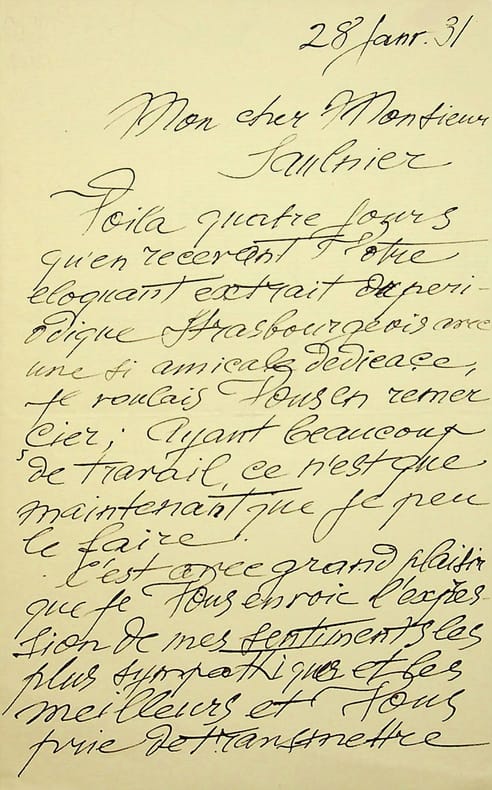 28 Janr. 31
Mon cher Monsieur
Saulnier
Voila quatre jours
qu'en recevant Votre
eloquant extrait du peri-
odique Strasbourgeois avec
une si amicale dedicace,
je voulais Vous en remer
cier; Ayant beaucoup
de travail, ce n'est que
maintenant que je peu
le faire.
C'est avec grand plaisir
que je Vous envoie l'expres-
sion de mes sentiments les
plus sympathiques et les
meilleurs et Vous
prie de transmettre